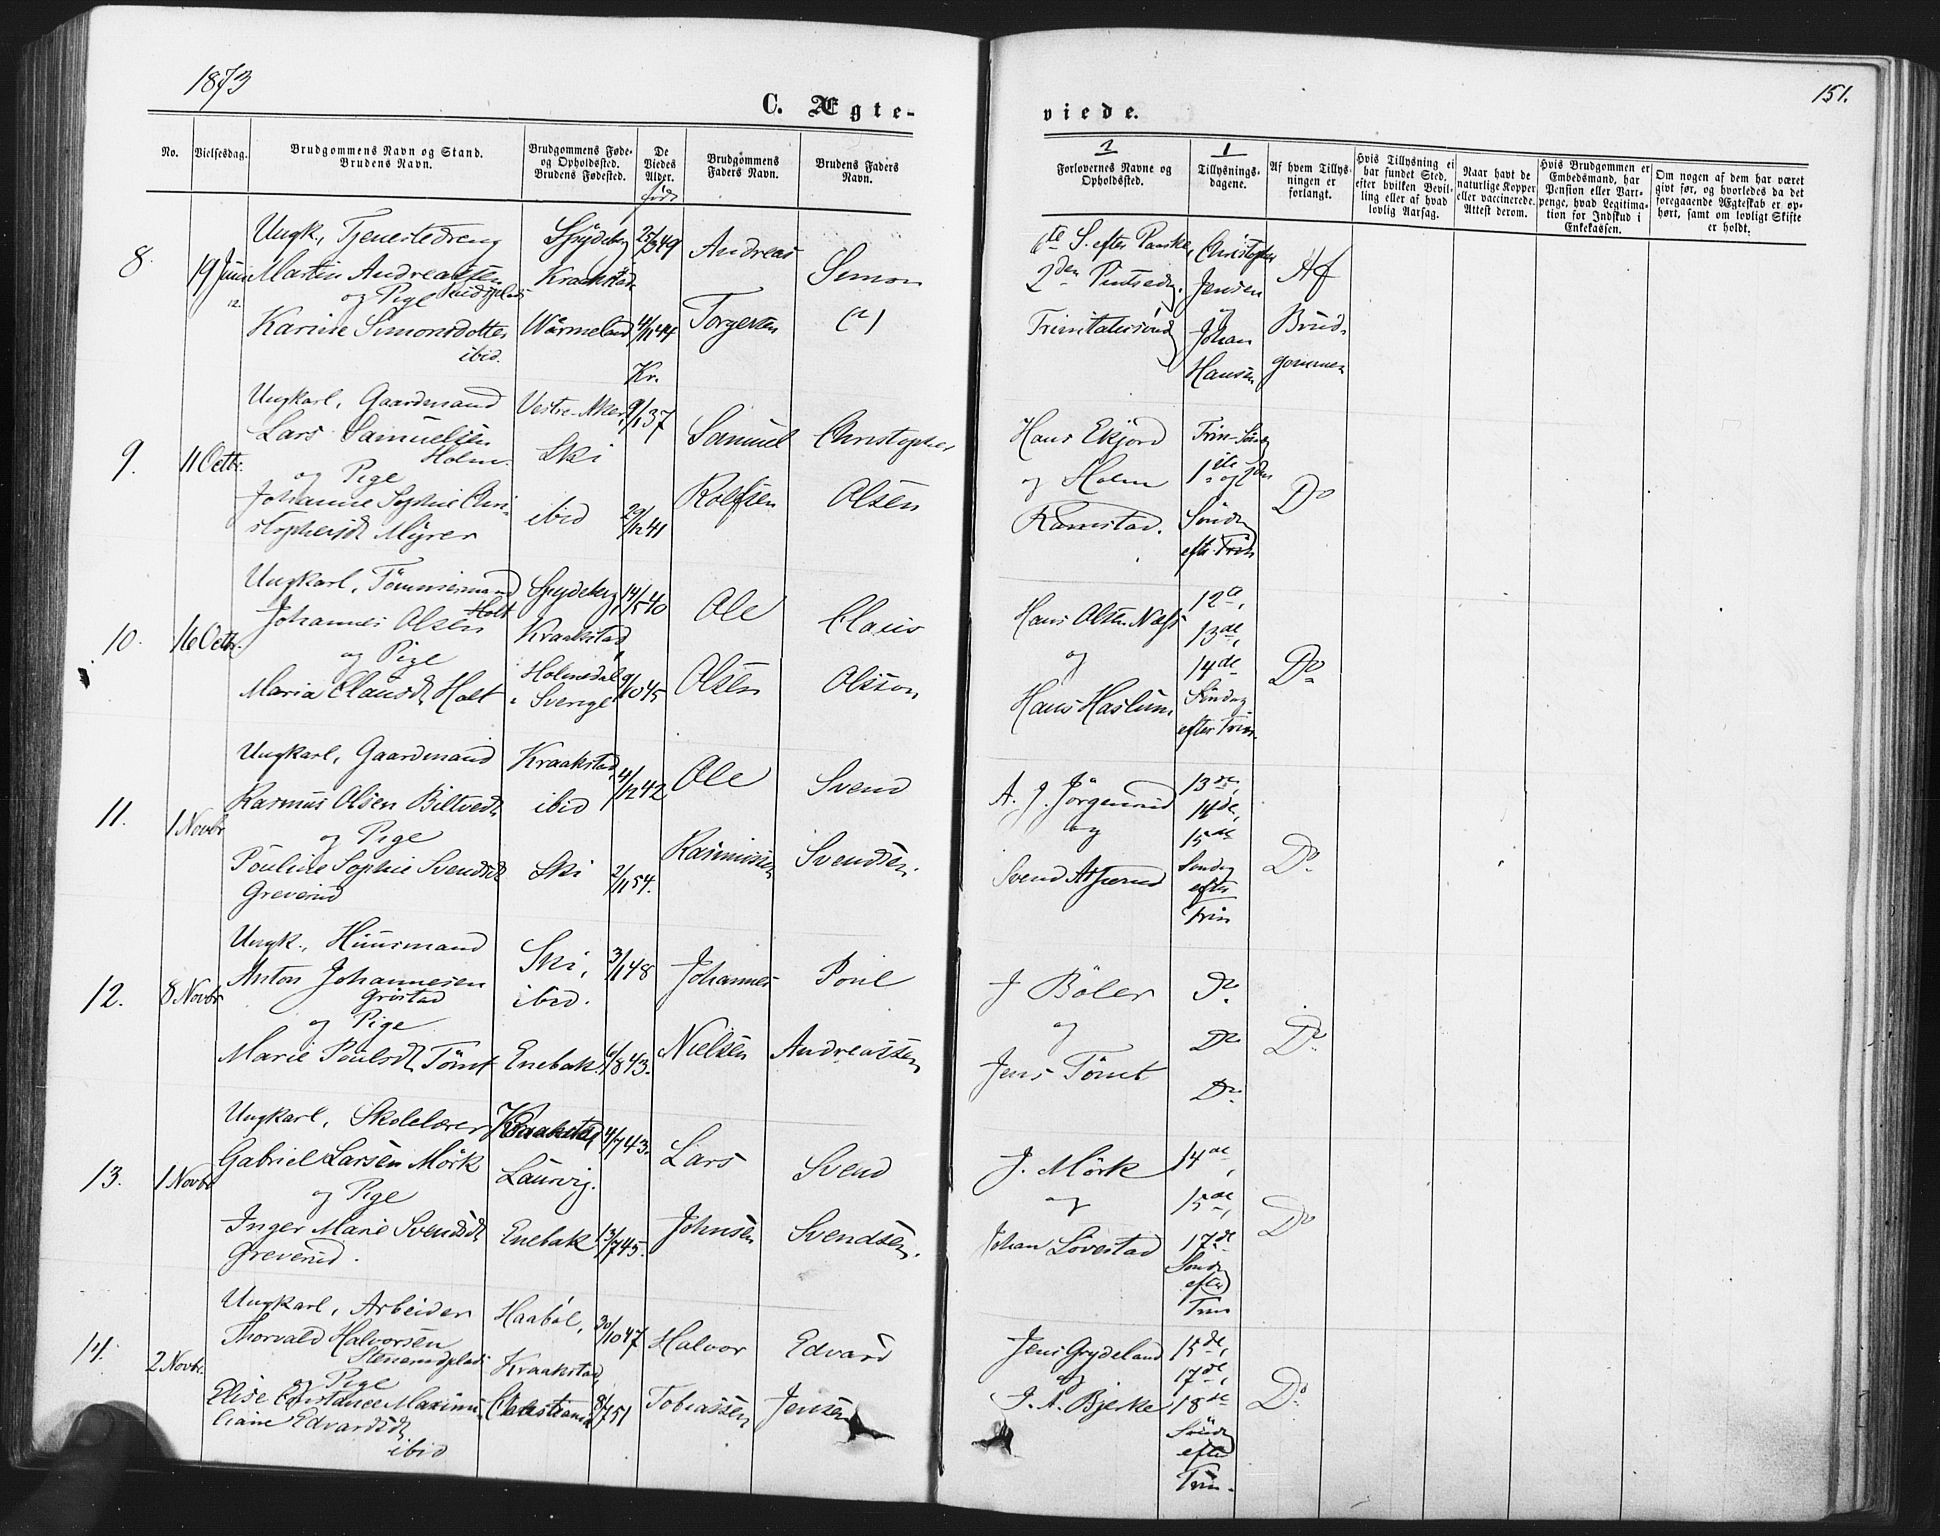 1873
151.
C. Ægte-
viede.
No.
Vielsesdag.
Brudgommens Navn og Stand.
Brudens Navn.
Brudgommens Føde-
og Opholdssted.
Brudens Fødested.
De
Viedes
Alder.
Brudgommens
Faders Navn.
Brudens Faders
Navn.
2
Forlovernes Navne og
Opholdssted.
1
Tillysnings-
dagene.
Af hvem Tillys-
ningen er
forlangt.
Hvis Tillysning ei
har fundet Sted,
efter hvilken Bevil-
ling eller af hvad
lovlig Aarsag.
Naar havt de
naturlige Kopper
eller vaccinerede.
Attest derom.
Hvis Brudgommen er
Embedsmand, har
Pension eller Vart-
penge, hvad Legitima-
tion for Indskud i
Enkekassen.
Om nogen af dem har været
gift før, og hvorledes da det
foregaaende Ægteskab er op-
hørt, samt om lovligt Skifte
er holdt.
8.
19 Juni
Ungk., Tjenestedreng
Martin Andreassen
og Pige
Karine Simonsdotter
ibid.
Spydeberg
Kraakstad
Wärmeland
25/3 49
4/11 44
Kr.
Andreas
Torgersen
Simon
(?)
1te S. efter Paaske,
2den Pintsedag
Trinitatissønd
Christopher
Jensen
og
Johan
Hansen
Af
Brud-
gommen
9.
11 Octbr.
Ungkarl, Gaardmand
Lars Samuelsen
Holm.
og Pige
Johanne Sophie Chri-
stophersd. Myrer
Vestre-Aker,
Ski
ibid
9/1 37
29/12 41
Samuel
Rolfsen
Christopher
Olsen
Hans Ekjord
og Holm
Ramstad.
Trin-Sønd
1ste og 2den
Sønd
eft. Trin
Do
10.
16 Octbr.
Ungkarl, Tømmermand
Johannes Olsen Holt
og Pige
Maria Clausd. Holt
Spydeberg,
Kraakstad,
Holmedal
i Sverige
14/5 40
9/10 45
Ole
Olsen
Claus
Olsson
Hans Olsen Næss
og
Hans Haslum
12te,
13de,
14de
Søndag
efter Trin.
Do
11.
1 Novbr
Ungkarl, Gaardmand
Rasmus Olsen Biltvedt
og Pige
Pouline Sophie Svendsd.
Greverud
Kraakstad,
ibid
Ski
4/12 42
2/11 54.
Ole
Rasmussen
Svend
Svendsen.
A. J. Jørgensrud
og
13de,
14de,
15de
Søndag
efter
Trin
Do
12.
8 Novbr
Ungk., Huusmand
Anton Johannesen
og Pige
Marie Poulsd. Tømt
Ski,
ibid.
Enebak
3/1 48
6/8 43.
Johannes
Nielsen
Poul
Andreassen
J Bøler
og
Jens Tømt
Do
Do
Do
Do
13.
1 Novbr
Ungkarl, Skolelærer
Gabriel Larsen Mørk
og Pige
Inger Marie Svendsd.
Greverud.
Kraakstad
Laurvig.
Enebak
4/7 43.
13/7 45.
Lars
Johnsen
Svend
Svendsen.
J. Mørk
og
Johan Løvestad
14de,
15de,
17de
Sønd
efter
Trin
Do
14.
2 Novbr.
Ungkarl, Arbeider
Thorvald Halvorsen
og Pige
Elise Constance Maximi-
liane Edvardsd.
ibid
Haabøl,
Kraakstad,
Christiania
30/10 47
8/7 51
Halvor
Tobiassen
Edvard
Jensen
Jens Grydeland
og
J. A. Bjerke
15de,
17de,
18de
Sønd
efter
Trin.
Do